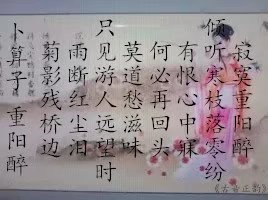 寂寞重阳醉
倾听寒枝落零纷
有恨心中寐
何必再回头
莫道愁滋味
只见游人远望时
雨断红尘泪
菊影残桥边
卜算子·重阳醉